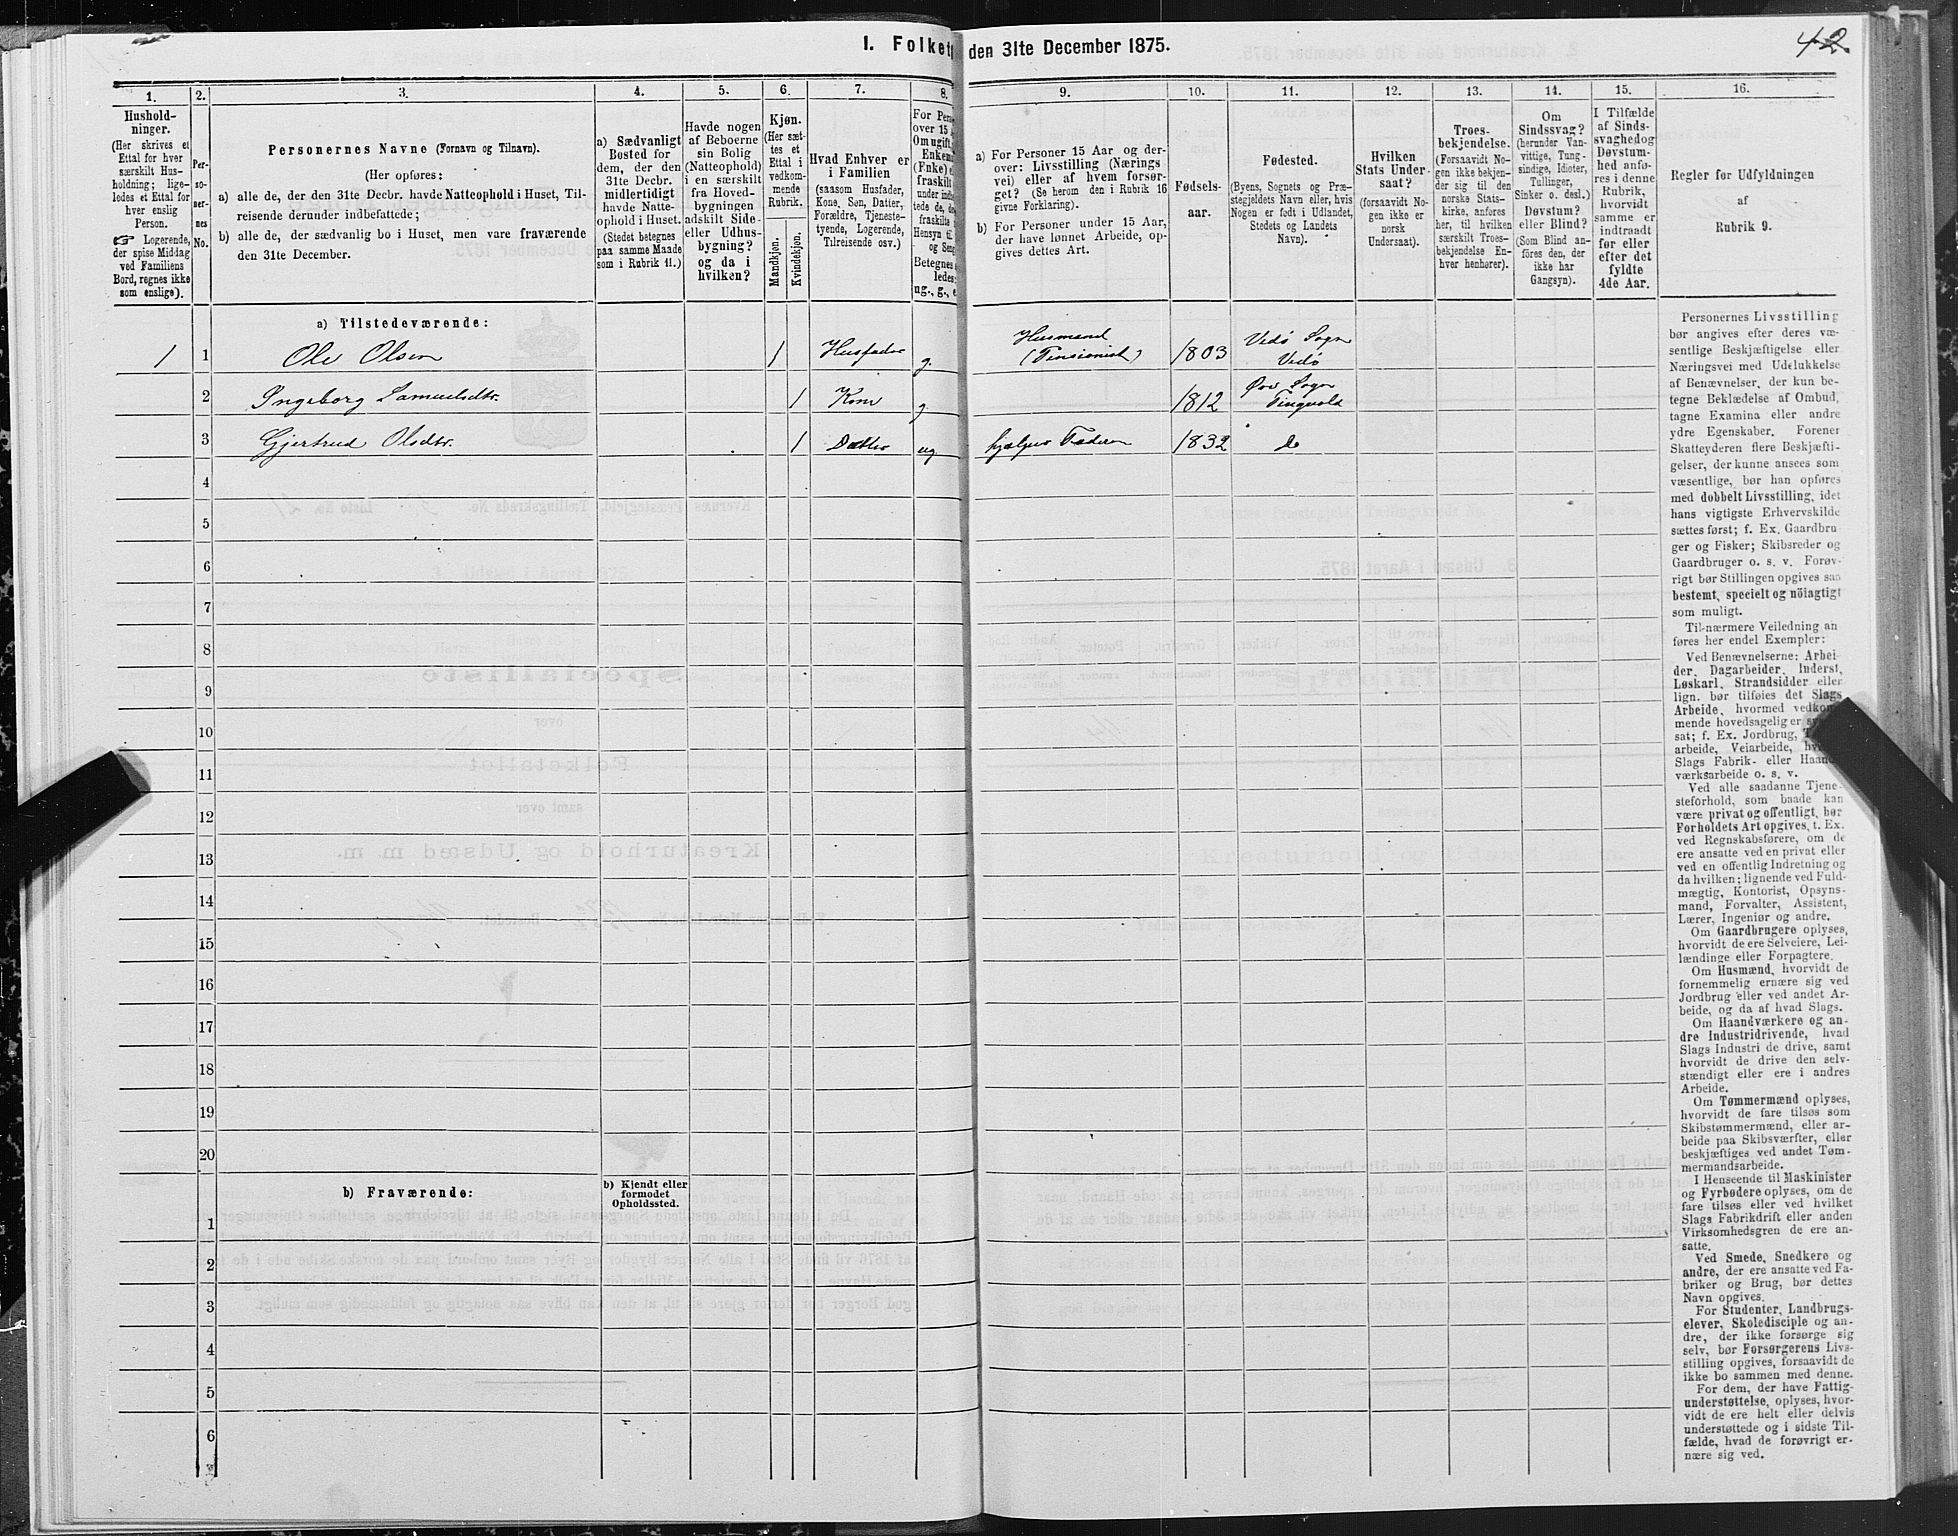 I. Folket den 31te December 1875.
42.
1. 2. 3. 4. 5. 6. 7. 8. 9. 10. 11. 12. 13. 14. 15. 16.
Hushold-
ninger.
(Her skrives et
Ettal for hver
særskilt Hus-
holdning; lige-
ledes et Ettal for
hver enslig
Person.
☞ Logerende,
der spise Middag
ved Familiens
Bord, regnes ikke
som enslige).
Per-
so-
ner-
nes
No.
Personernes Navne (Fornavn og Tilnavn).
(Her opføres:
a) alle de, der den 31te Decbr. havde Natteophold i Huset, Til-
reisende derunder indbefattede;
b) alle de, der sædvanlig bo i Huset, men vare fraværende
den 31te December.
a) Sædvanligt
Bosted for
dem, der den
31te Decbr.
midlertidigt
havde Natte-
ophold i Huset.
(Stedet betegnes
paa samme Maade
som i Rubrik 11.)
Havde nogen
af Beboerne
sin Bolig
(Natteophold)
i en særskilt
fra Hoved-
bygningen
adskilt Side-
eller Udhus-
bygning?
og da i
hvilken?
Kjøn.
(Her sæt-
tes et
Ettal i
vedkom-
mende
Rubrik.
Mandkjøn.
Kvindekjøn.
Hvad Enhver er
i Familien
(saasom Husfader,
Kone, Søn, Datter,
Forældre, Tjeneste-
tyende, Logerende,
Tilreisende osv.)
For Pers
over 15
Om ugift,
Enkem
(Enke)
fraskilt
under indbe
tede de, de
fraskilte
Hensyn ti
og Seng
Betegnes
ledes:
ug., g., e
a) For Personer 15 Aar og der-
over: Livsstilling (Nærings
vei) eller af hvem forsør-
get? (Se herom den i Rubrik 16
givne Forklaring).
b) For Personer under 15 Aar,
der have lønnet Arbeide, op-
gives dettes Art.
Fødsels-
aar.
Fødested.
(Byens, Sognets og Præ-
stegjeldets Navn eller, hvis
Nogen er født i Udlandet,
Stedets og Landets
Navn).
Hvilken
Stats Under-
saat?
(forsaavidt No-
gen ikke er
norsk
Undersaat).
Troes-
bekjendelse.
(Forsaavidt No-
gen ikke bekjen-
der sig til den
norske Stats-
kirke, anføres
her, til hvilken
særskilt Troes-
bekjendelse En-
hver henhører).
Om
Sindssvag?
(herunder Van-
vittige, Tung-
sindige, Idioter,
Tullinger,
Sinker o. desl.)
Døvstum?
eller Blind?
(Som Blind an-
føres den, der
ikke har
Gangsyn).
I Tilfælde
af Sinds-
svaghed og
Døvstum-
hed anfø-
res i denne
Rubrik,
hvorvidt
samme er
indtraadt
før eller
efter det
fyldte
4de Aar.
Regler før Udfyldningen
af
Rubrik 9.
a) Tilstedeværende:
1 1 Ole Olsen 1 Husfader g. Husmand (Pensionist) 1803 Vedø Sogn Vedø
2 Ingeborg Samuelsdtr. 1 Kone g. 1812 Øre Sogn Tingvold
3 Gjertrud Olsdtr. 1 Datter ug hjælper Faderen 1832 do
4
5
6
7
8
9
10
11
12
13
14
15
16
17
18
19
20
b) Fraværende:
b) Kjendt eller
formodet
Opholdssted.
1
2
3
4
5
6
Personernes Livsstilling
bør angives efter deres væ-
sentlige Beskjæftigelse eller
Næringsvei med Udelukkelse
af Benævnelser, der kun be-
tegne Beklædelse af Ombud,
tagne Examina eller andre
ydre Egenskaber. Forener
Skatteyderen flere Beskjæfti-
gelser, der kunne ansees som
væsentlige, bør han opføres
med dobbelt Livsstilling, idet
hans vigtigste Erhvervskilde
sættes først; f. Ex. Gaardbru-
ger og Fisker; Skibsreder og
Gaardbruger o. s. v. Forøv-
rigt bør Stillingen opgives saa
bestemt, specielt og nöiagtigt
som muligt.
Til nærmere Veiledning an
føres her endel Exempler:
Ved Benævnelserne: Arbei-
der, Dagarbeider, Inderst,
Løskarl, Strandsidder eller
lign. bør tilføies det Slags
Arbeide, hvormed vedkom-
mende hovedsagelig er
sat; f. Ex. Jordbrug,
arbeide, Veiarbeide,
Slags Fabrik- eller Haand-
værksarbeide o. s. v.
Ved alle saadanne Tjene-
steforhold, som baade kan
være privat og offentligt, bør
Forholdets Art opgives, t. Ex.
ved Regnskabsførere, om de
ere ansatte ved en privat eller
ved en offentlig Indretning og
da hvilken; lignende ved Fuld-
mægtig, Kontorist, Opsyns-
mand, Forvalter, Assistent,
Lærer, Ingeniør og andre.
Om Gaardbrugere oplyses,
hvorvidt de ere Selveiere, Lei-
lændinge eller Forpagtere.
Om Husmænd, hvorvidt de
fornemmelig ernære sig ved
Jordbrug eller ved andet Ar-
beide, og da af hvad Slags.
Om Haandværkere og an-
dre Industridrivende, hvad
Slags Industri de drive, samt
hvorvidt de drive den selv-
stændigt eller ere i andres
Arbeide.
Om Tømmermænd oplyses,
hvorvidt de fare tilsøs som
Skibstømmermænd, eller ar-
beide paa Skibsværfter, eller
beskjæftiges ved andet Tøm-
mermandsarbeide.
I Henseende til Maskinister
og Fyrbødere oplyses, om de
fare tilsøs eller ved hvilket
Slags Fabrikdrift eller anden
Virksomhedsgren de ere an-
satte.
Ved Smede, Snedkere og
andre, der ere ansatte ved Fa-
briker og Brug, bør dettes
Navn opgives.
For Studenter, Landbrugs-
elever, Skoledisciple og an-
dre, der ikke forsørge sig
selv, bør Forsørgerens Livs-
stilling opgives, forsaavidt de
ikke bo sammen med denne.
For dem, der have Fattig-
understøttelse, oplyses, hvor-
vidt de ere helt eller delvis
understøttede og i sidste Til-
fælde, hvad de forøvrigt er-
nære sig ved.